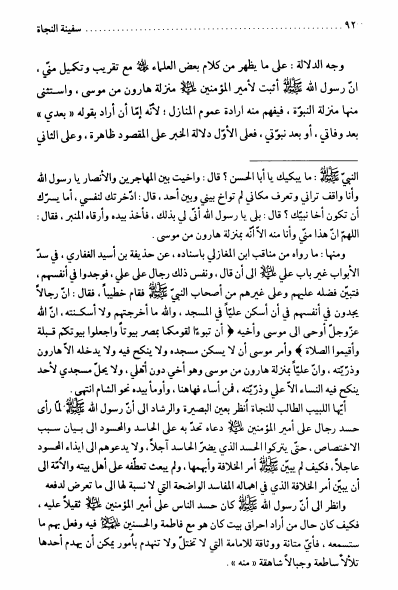 ٩٢ ........................................ سفينة النجاة
وجه الدلالة : على ما يظهر من كلام بعض العلماء ﵀ مع تقريب وتكميل منّي ،
انّ رسول الله ﷺ أثبت لأمير المؤمنين ﵇ منزلة هارون من موسى ، واستثنى
منها منزلة النبوّة ، فيفهم منه ارادة عموم المنازل ؛ لأنّه إمّا أن أراد بقوله « بعدي »
بعد وفاتي ، أو بعد نبوّتي ، فعلى الأوّل دلالة الخبر على المقصود ظاهرة ، وعلى الثاني
النبيّ ﷺ : ما يبكيك يا أبا الحسن ؟ قال : واخيت بين المهاجرين والأنصار يا رسول الله
وأنا واقف تراني وتعرف مكاني لم تواخ بيني وبين أحد ، قال : ادّخرتك لنفسي ، أما يسرّك
أن تكون أخا نبيّك ؟ قال : بلى يا رسول الله أنّى لي بذلك ، فأخذ بيده وأرقاه المنبر ، فقال :
اللهمّ انّ هذا منّي وأنا منه الاّ أنّه بمنزلة هارون من موسى .
ومنها : ما رواه من مناقب ابن المغازلي باسناده ، عن حذيفة بن أسيد الغفاري ، في سدّ
الأبواب غير باب علي ﵇ الى أن قال ، ونفس ذلك رجال على علي ، فوجدوا في أنفسهم ،
فتبيّن فضله عليهم وعلى غيرهم من أصحاب النبيّ ﷺ فقام خطيباً ، فقال : انّ رجالاً
يجدون في أنفسهم في أن أسكن عليّاً في المسجد ، والله ما أخرجتهم ولا أسكنته ، انّ الله
عزّوجلّ أوحى الى موسى وأخيه ﴿ أن تبوءا لقومكما بمصر بيوتاً واجعلوا بيوتكم قبلة
وأقيموا الصلاة ﴾ وأمر موسى أن لا يسكن مسجده ولا ينكح فيه ولا يدخله الاّ هارون
وذرّيّته ، وانّ عليّاً بمنزلة هارون من موسى وهو أخي دون أهلي ، ولا يحلّ مسجدي لأحد
ينكح فيه النساء الاّ علي وذرّيّته ، فمن أساء فهاهنا ، وأومأ بيده نحو الشام انتهى .
أيّها اللبيب الطالب للنجاة أنظر بعين البصيرة والرشاد الى أنّ رسول الله ﷺ لمّا رأى
حسد رجال على أمير المؤمنين ﵇ دعاه تحدّ به على الحاسد والمحسود الى بيان سبب
الاختصاص ، حتّى يتركوا الحسد الذي يضرّ الحاسد آجلاً ، ولا يدعوهم الى ايذاء المحسود
عاجلاً ، فكيف لم يبيّن ﷺ أمر الخلافة وأبهمها ، ولم يبعث تعطّفه على أهل بيته والاُمّة الى
أن يبيّن أمر الخلافة الذي في اهماله المفاسد الواضحة التي لا نسبة لها الى ما تعرض لدفعه
وانظر الى أنّ رسول الله ﷺ كان حسد الناس على أمير المؤمنين ﵇ ثقيلاً عليه ،
فكيف كان حال من أراد احراق بيت كان هو مع فاطمة والحسنين ﵈ فيه وفعل بهم ما
ستسمعه ، فأيّ متانة ووثاقة للامامة التي لا تختلّ ولا تنهدم بأمور يمكن أن يهدم أحدها
تلالاً ساطعة وجبالاً شاهقة « منه » .